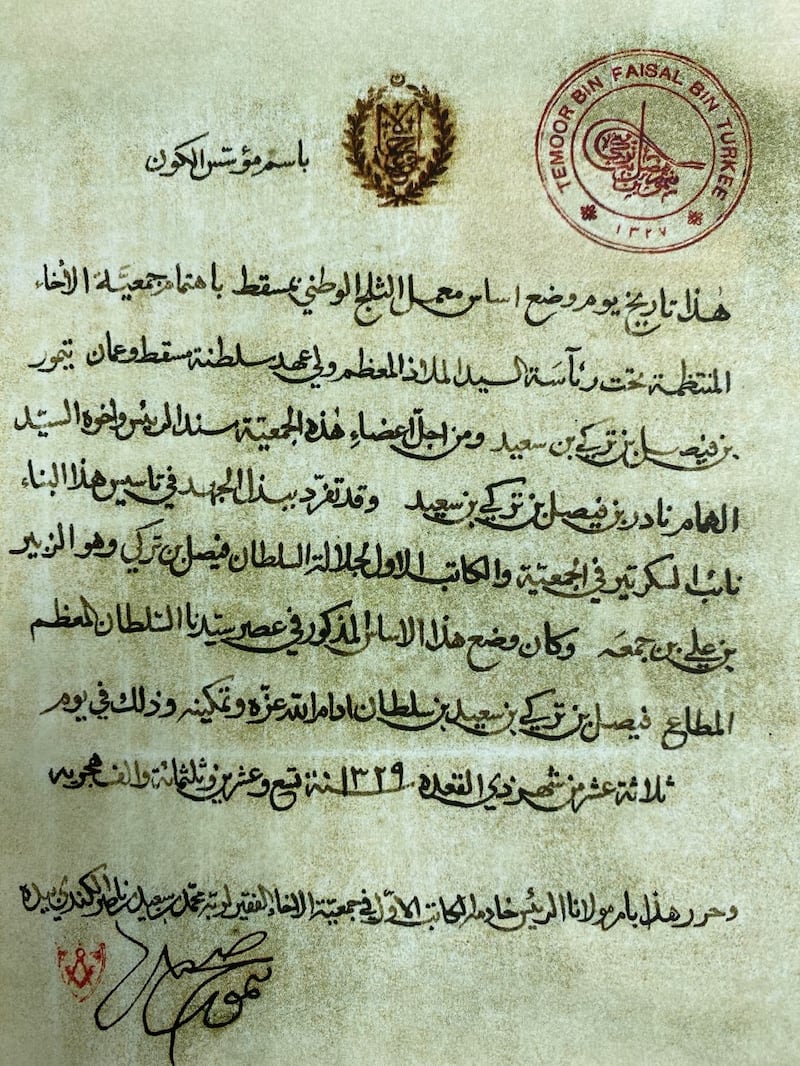 باسم مؤسّس الكون
TEMOOR BIN FAISAL BIN TURKEE
١٣٢٧
هٰذا تاريخ يوم وضع اساس معمل الثلج الوطني بمسقط باهتمام جمعيّة الأخاء
المنتظمة تحت رئآسة السيد الملاذ المعظم ولي عهد سلطنة مسقط وعمان تيمور
بن فيصل بن تركي بن سعيد ومن اجلّ اعضاءِ هٰذه الجمعيّة سند الرئيس واخوه السيّد
الهمام نادر بن فيصل بن تركي بن سعيد وقد تفرّد ببذل الجهد في تاسيس هذا البناء
نائب السكرتير في الجمعيّة والكاتب الاول لجلالة السلطان فيصل بن تركي وهو الزبير
بن علي بن جمعه وكان وضع هذا الاساس المذكور في عصر سيّدنا السّلطان المعظم
المطاع فيصل بن تركي بن سعيد بن سلطان ادام الله عزّه وتمكينه وذلك في يوم
ثلاثة عشر من شهر ذي القعده ١٣٢٩ سنة تسع وعشرين وثلثمائة والف هجريه
وحرر هذا بامر مولانا الرئيس خادمه الكاتب الاوّل في جمعيّة الاخاء الفقير لربه محمد بن سعيد بن ناصر الكندي بيده
صحيح
تيمور